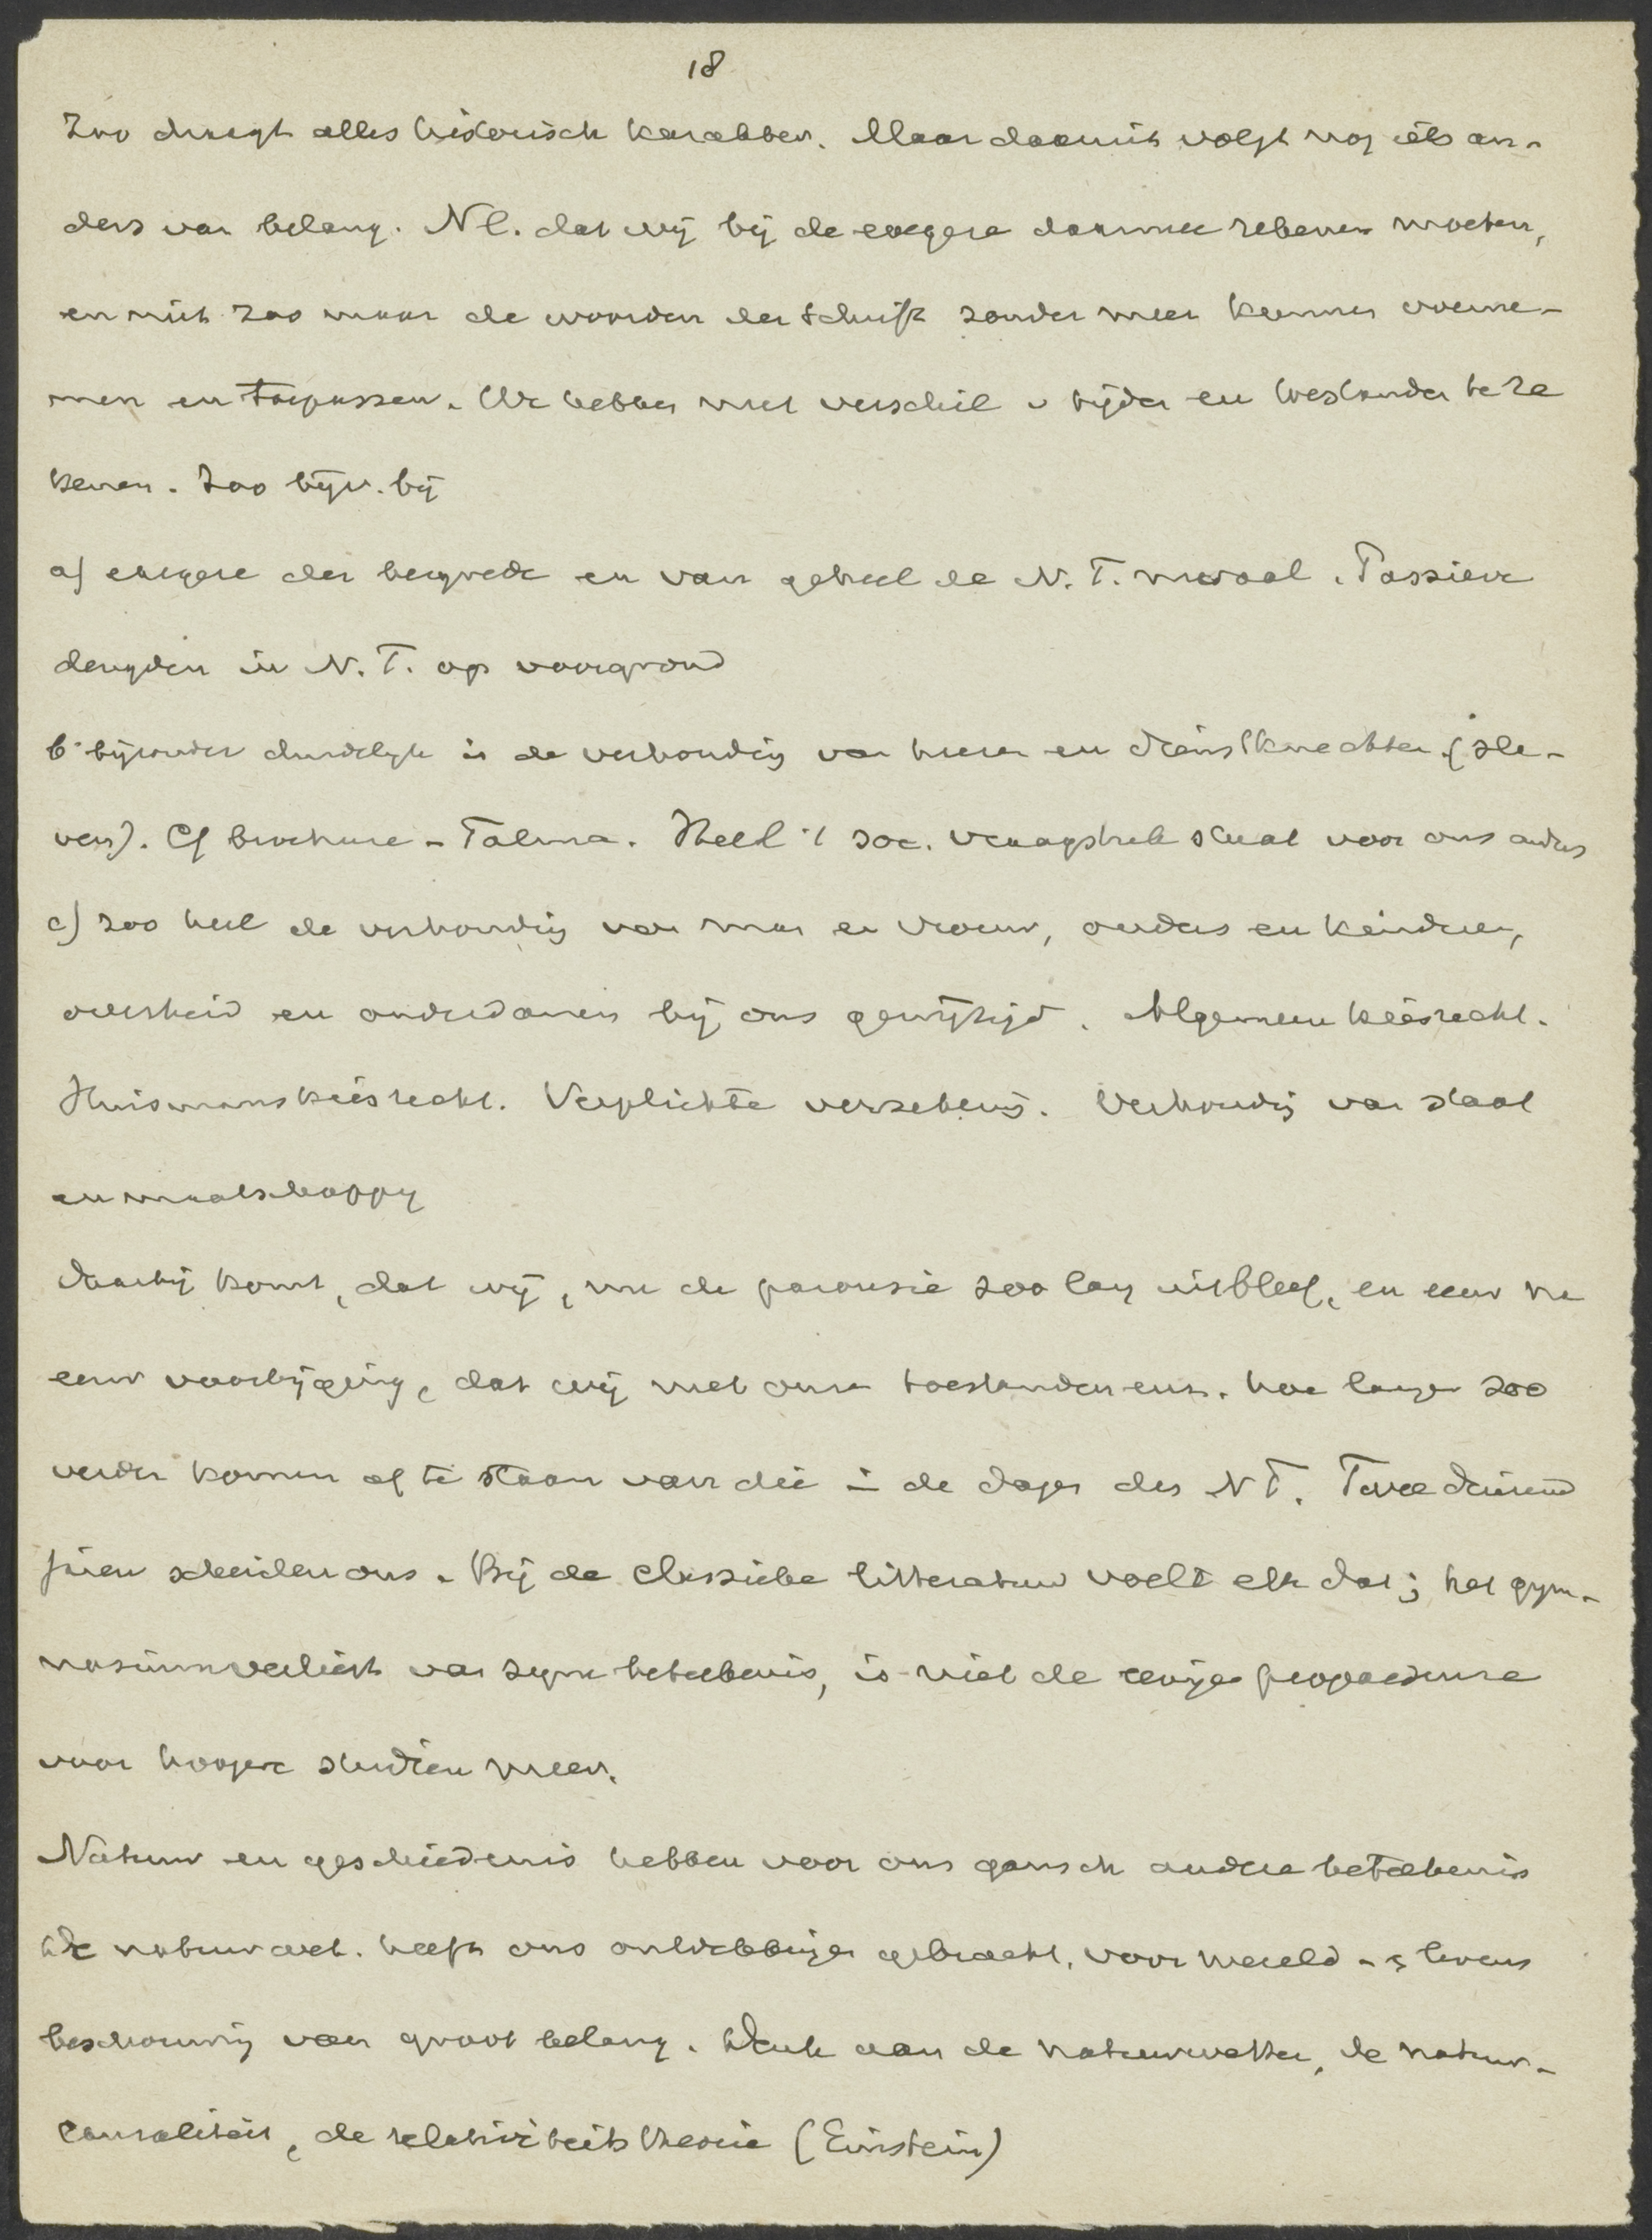 18
Zoo draagt alles historisch karakter. Maar daaruit volgt nog iets an-
ders van belang. Nl. dat wij bij de exegese daarmee rekenen moeten,
en niet zoo maar de woorden der Schrift zonder meer kunnen overne-
men en toepassen. We hebben met verschil v tijden en toestanden te re
kenen. Zoo bijv. bij
a) exegese der bergrede en van geheel de N. T. moraal. Passieve
deugden in N. T. op voorgrond
b bijzonder duidelijk is de verhouding van heeren en dienstknechten (sla-
ven). Cf brochure - Talma. Heel 't soc. vraagstuk staat voor ons anders
c) zoo heel de verhouding van man en vrouw, ouders en kinderen,
overheid en onderdanen bij ons gewijzigd. Algemeen kiesrecht.
Huismanskiesrecht. Verplichte verzekering. Verhouding van staat
en maatschappy
Daarbij komt, dat wij, nu de parousie zoo lang uitbleef, en eeuw na
eeuw voorbijging, dat wij met onze toestanden enz. hoe langer zoo
verder komen af te staan van die in de dagen des N T. Twee duizend
jaren scheiden ons. Bij de classieke litteratuur voelt elk dat; het gym-
nasium verliest van zijne beteekenis, is niet de eenige propaedeuse
voor hoogere studien meer.
Natuur en geschiedenis hebben voor ons gansch andere beteekenis
De natuurwet. heeft ons ontdekkingen gebracht, voor wereld - & levens
beschouwing van groot belang. Denk aan de natuurwetten, de natuur-
causaliteit, de relativiteitstheorie (Einstein)